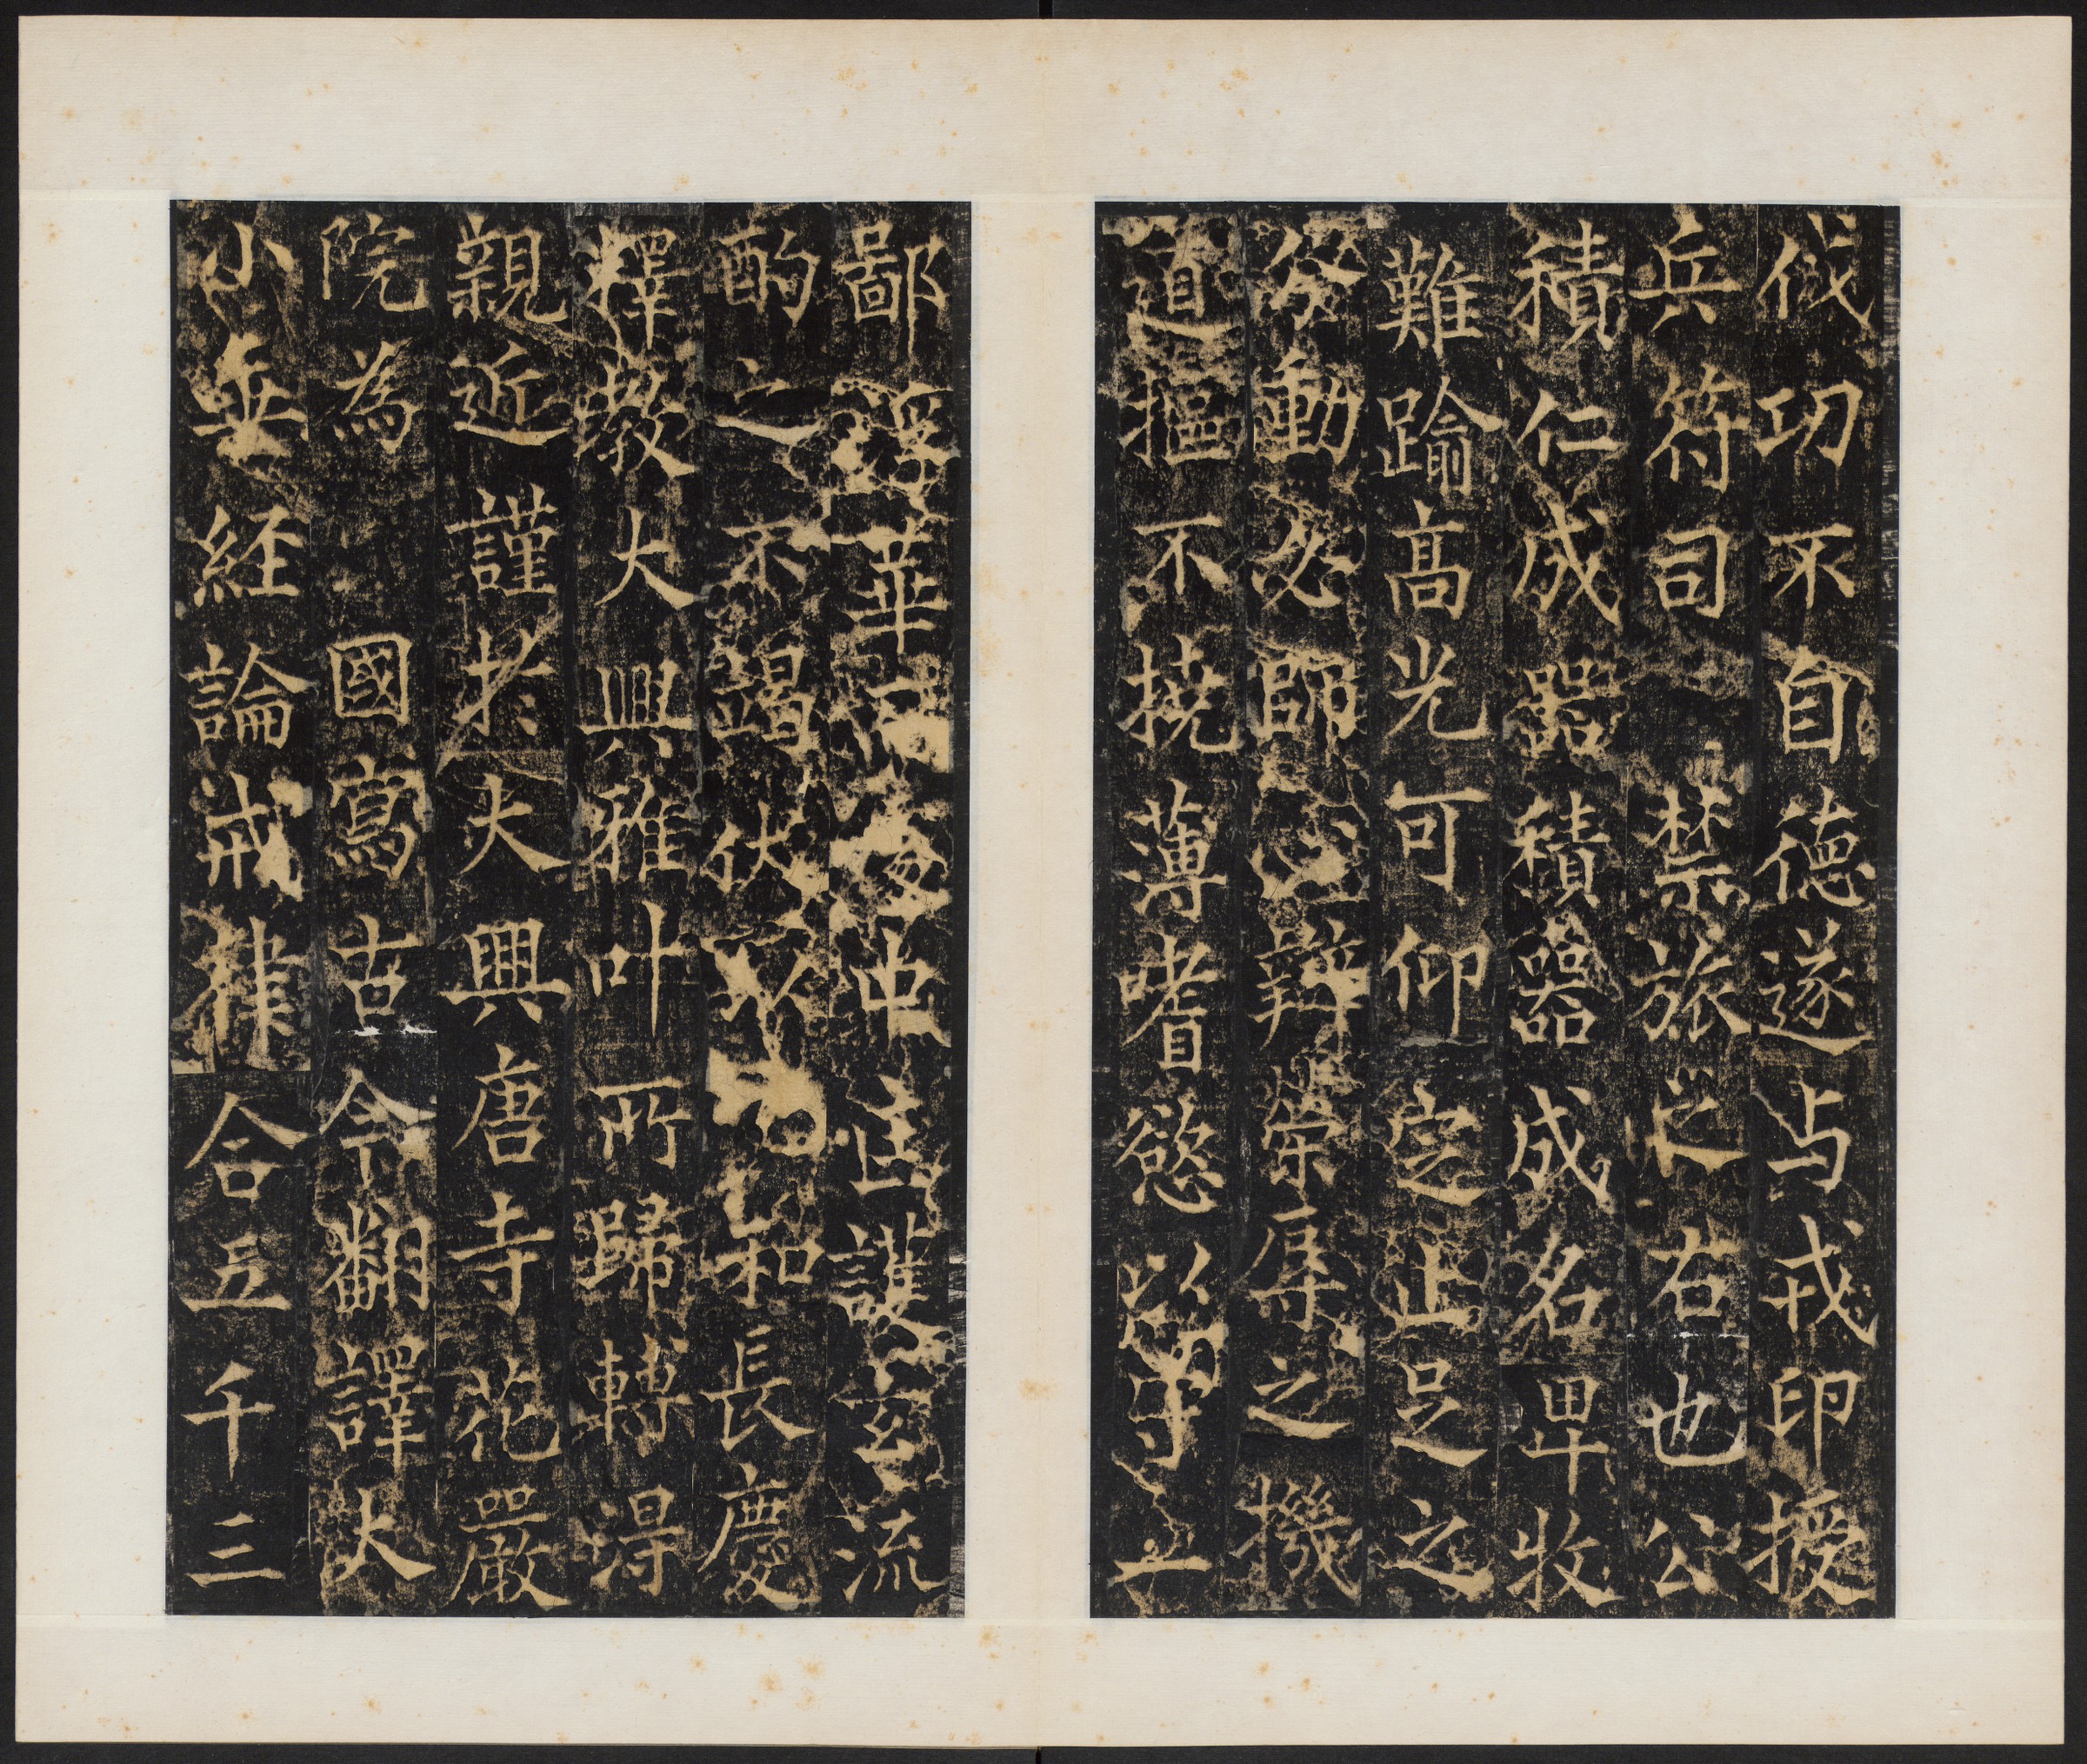 伐功不自德遂占戎印授
兵符司禁旅之右也公
積仁成器積器成名卑牧
難踰高光可仰定止足之
分動必師心辯榮辱之機
道摳不撓薄嗜慾以等
鄙浮華守中止護玄流
酌之不竭伏以和長慶
釋教大興雅叶所歸轉得
親近謹於大興唐寺花嚴
院為國寫古今翻譯大
小乘經論戒律合五千三